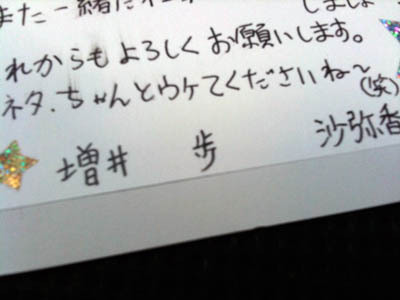 また一緒に
しましょ
れからもよろしくお願いします。
ネタ、ちゃんとウケてくださいね〜(笑)
増井 歩 沙弥香